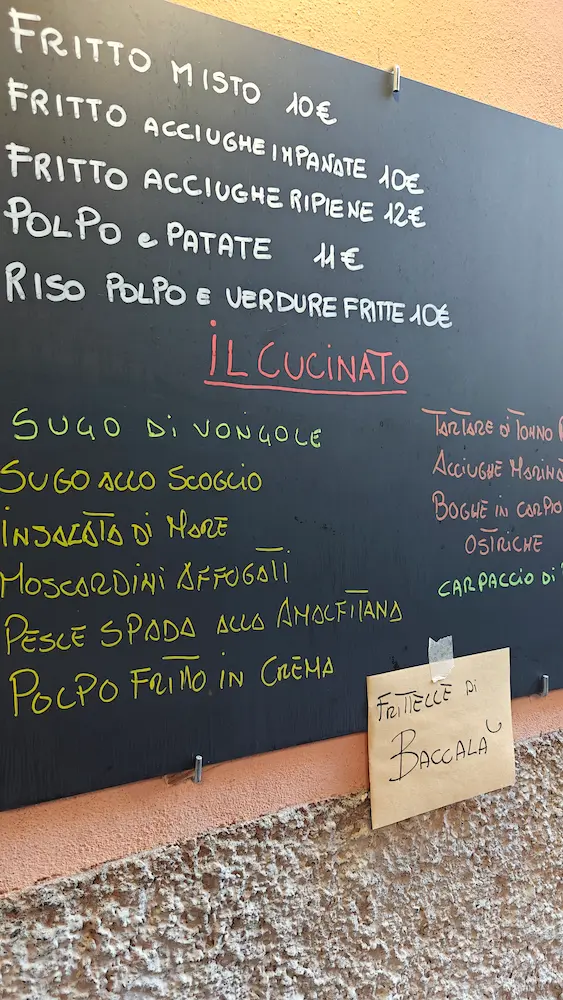 FRITTO MISTO 10€
FRITTO ACCIUGHE IMPANATE 10€
FRITTO ACCIUGHE RIPIENE 12€
POLPO e PATATE 11€
RISO POLPO E VERDURE FRITTE 10€
IL CUCINATO
SUGO DI VONGOLE
SUGO ALLO SCOGLIO
INSALATA DI MARE
MOSCARDINI AFFOGATI
PESCE SPADA ALLA AMALFITANA
POLPO FRITTO IN CREMA
TARTARE DI TONNO
ACCIUGHE MARINA
BOGHE IN CARPIO
OSTRICHE
CARPACCIO DI
FRITTELLE DI
BACCALÀ